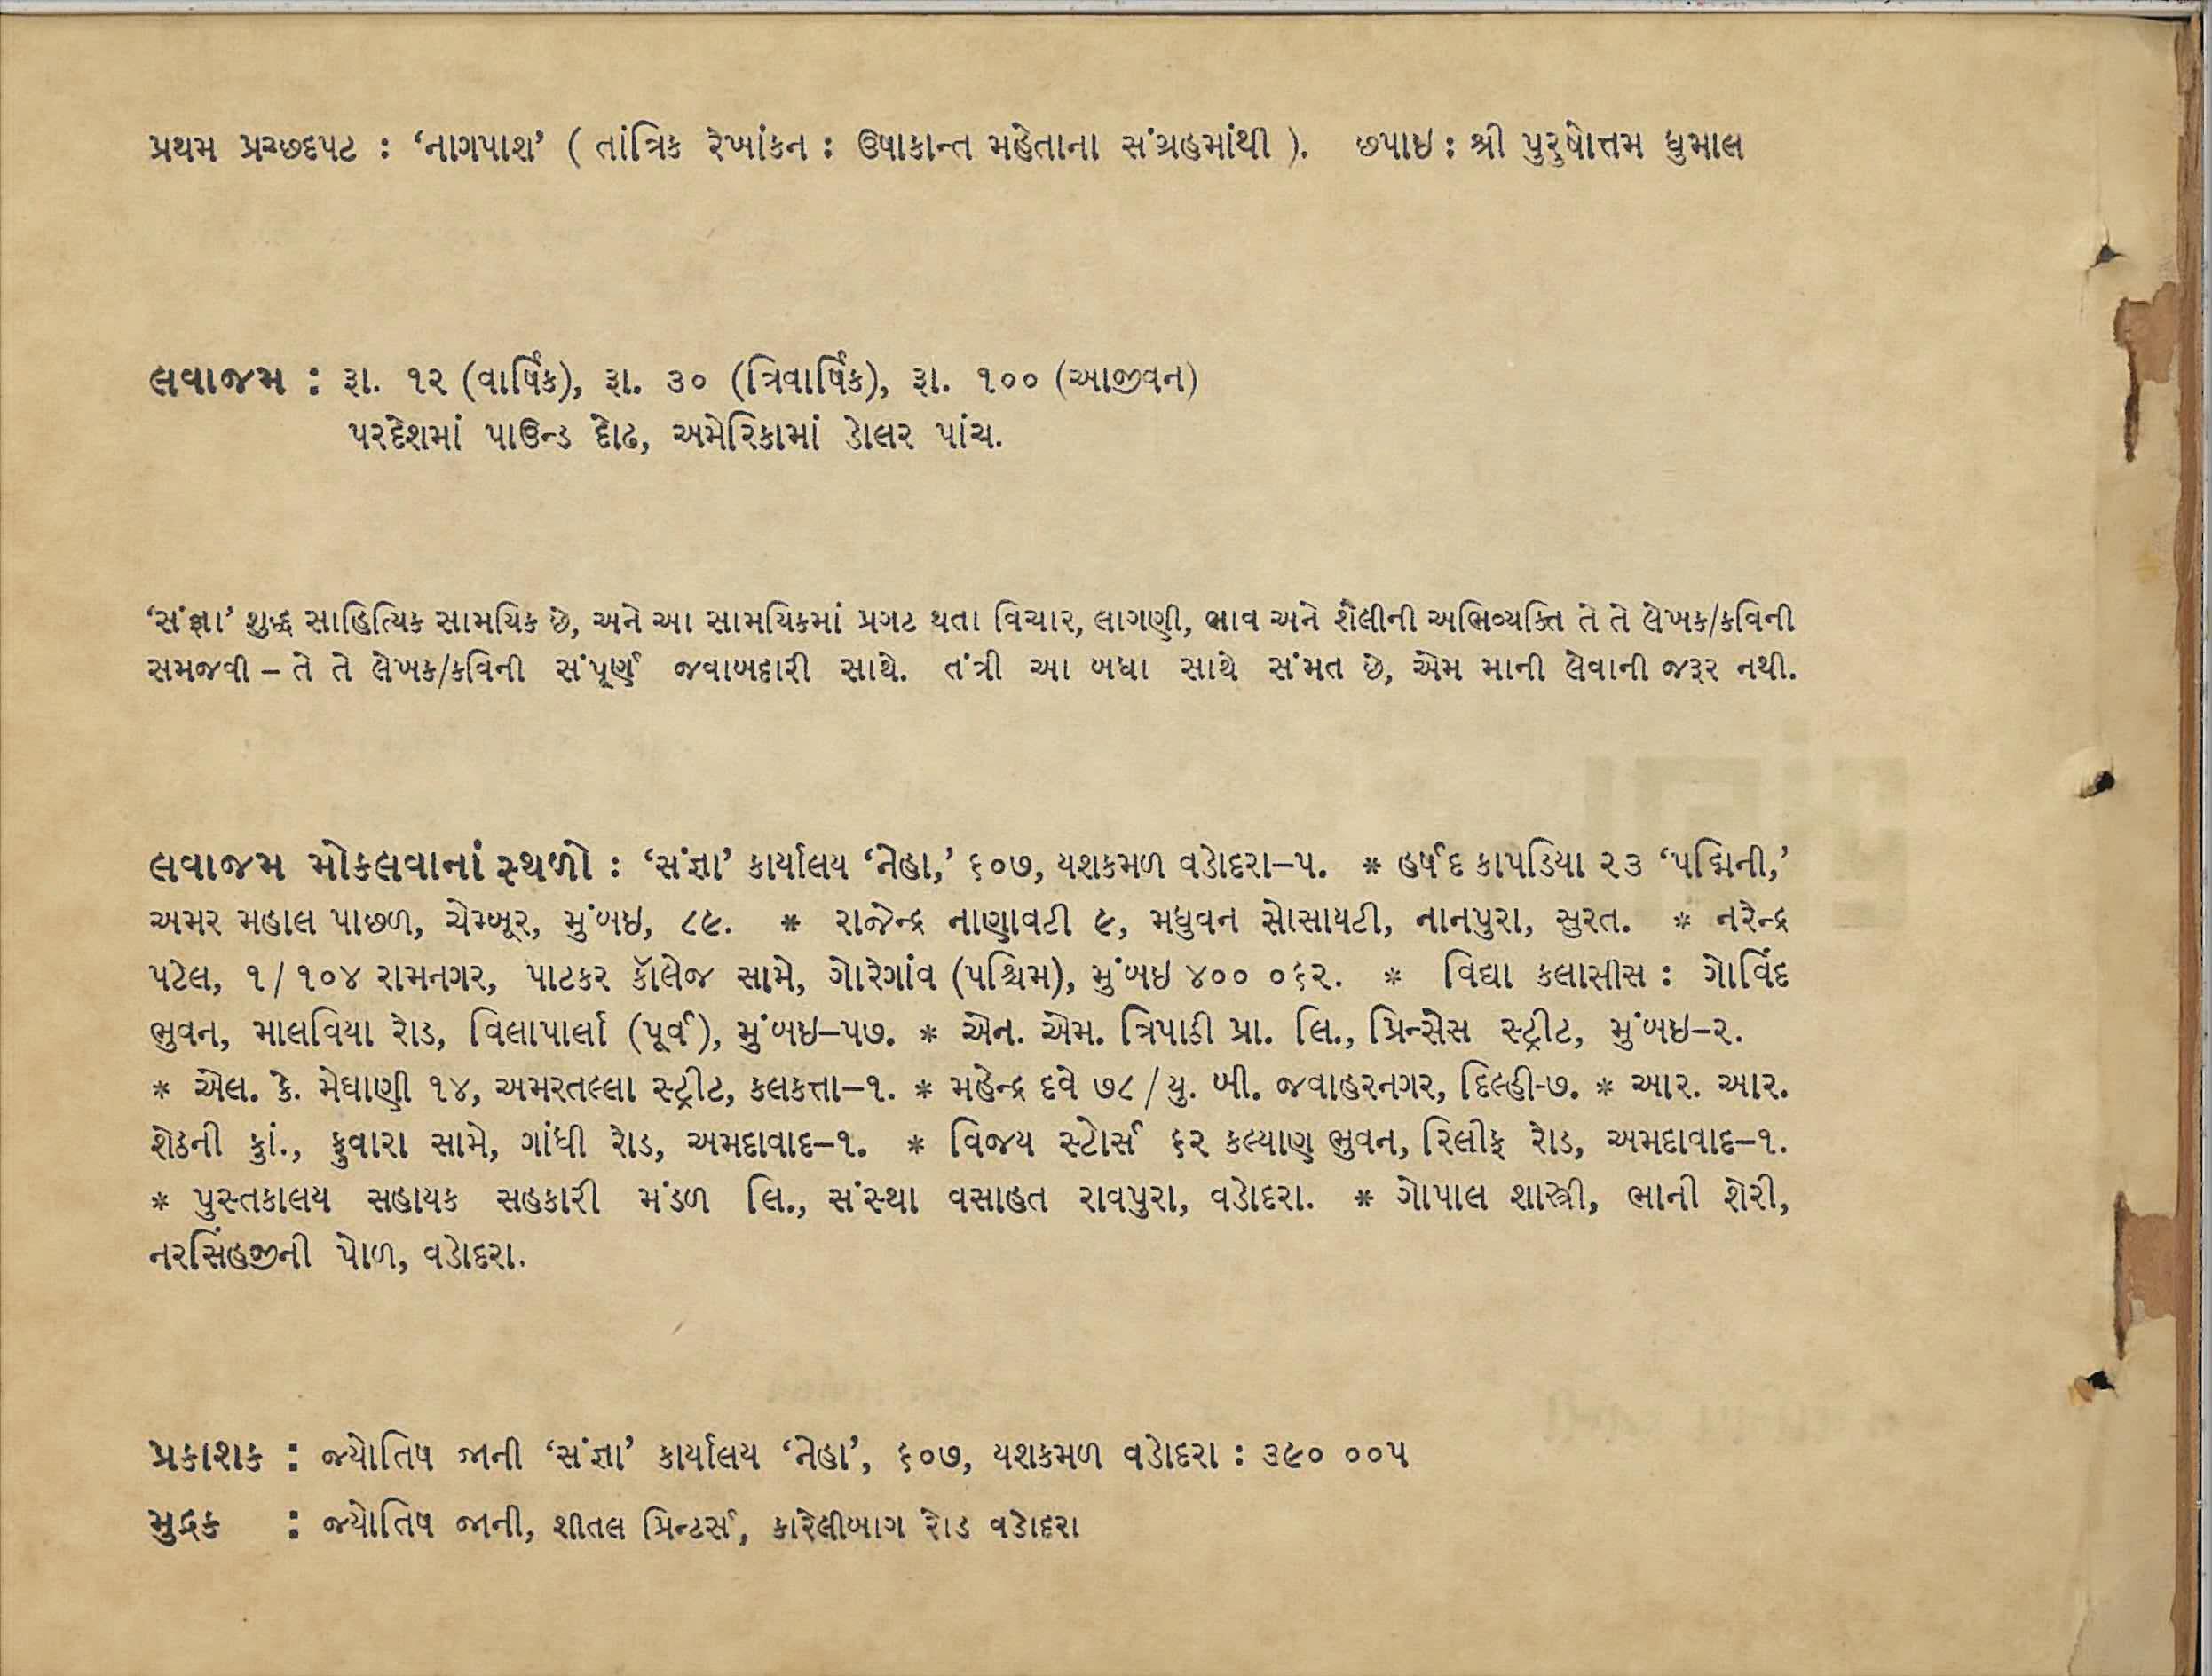 પ્રથમ પ્રચ્છદપટ : ‘નાગપાશ’ ( તાંત્રિક રેખાંકન : ઉષાકાન્ત મહેતાના સંગ્રહમાંથી ). છપાઇ : શ્રી પુરુષોત્તમ ધુમાલ
લવાજમ : રૂા. ૧૨ (વાર્ષિક), રૂા. ૩૦ (ત્રિવાર્ષિક), રૂા. ૧૦૦ (આજીવન)
પરદેશમાં પાઉન્ડ દોઢ, અમેરિકામાં ડોલર પાંચ.
‘સંજ્ઞા’ શુદ્ધ સાહિત્યિક સામયિક છે, અને આ સામયિકમાં પ્રગટ થતા વિચાર, લાગણી, ભાવ અને શૈલીની અભિવ્યક્તિ તે તે લેખક/કવિની
સમજવી – તે તે લેખક/કવિની સંપૂર્ણ જવાબદારી સાથે. તંત્રી આ બધા સાથે સંમત છે, એમ માની લેવાની જરૂર નથી.
લવાજમ મોકલવાનાં સ્થળો : ‘સંજ્ઞા’ કાર્યાલય ‘નેહા,’ ૬૦૭, યશકમળ વડોદરા–૫. * હર્ષદ કાપડિયા ૨૩ ‘પદ્મિની,’
અમર મહાલ પાછળ, ચેમ્બૂર, મુંબઇ, ૮૯. * રાજેન્દ્ર નાણાવટી ૯, મધુવન સોસાયટી, નાનપુરા, સુરત. * નરેન્દ્ર
પટેલ, ૧/૧૦૪ રામનગર, પાટકર કૉલેજ સામે, ગોરેગાંવ (પશ્ચિમ), મુંબઇ ૪૦૦ ૦૬૨. * વિદ્યા કલાસીસ : ગોવિંદ
ભુવન, માલવિયા રોડ, વિલાપાર્લા (પૂર્વ), મુંબઇ–૫૭. * એન. એમ. ત્રિપાઠી પ્રા. લિ., પ્રિન્સેસ સ્ટ્રીટ, મુંબઇ–૨.
* એલ. કે. મેઘાણી ૧૪, અમરતલ્લા સ્ટ્રીટ, કલકત્તા–૧. * મહેન્દ્ર દવે ૭૮/યુ. બી. જવાહરનગર, દિલ્હી-૭. * આર. આર.
શેઠની કુાં., ફુવારા સામે, ગાંધી રોડ, અમદાવાદ–૧. * વિજય સ્ટોર્સ ૬૨ કલ્યાણ ભુવન, રિલીફ રોડ, અમદાવાદ–૧.
* પુસ્તકાલય સહાયક સહકારી મંડળ લિ., સંસ્થા વસાહત રાવપુરા, વડોદરા. * ગોપાલ શાસ્ત્રી, ભાની શેરી,
નરસિંહજીની પોળ, વડોદરા.
પ્રકાશક : જ્યોતિષ જાની ‘સંજ્ઞા’ કાર્યાલય ‘નેહા’, ૬૦૭, યશકમળ વડોદરા : ૩૯૦ ૦૦૫
મુદ્રક : જ્યોતિષ જાની, શીતલ પ્રિન્ટર્સ, કારેલીબાગ રોડ વડોદરા